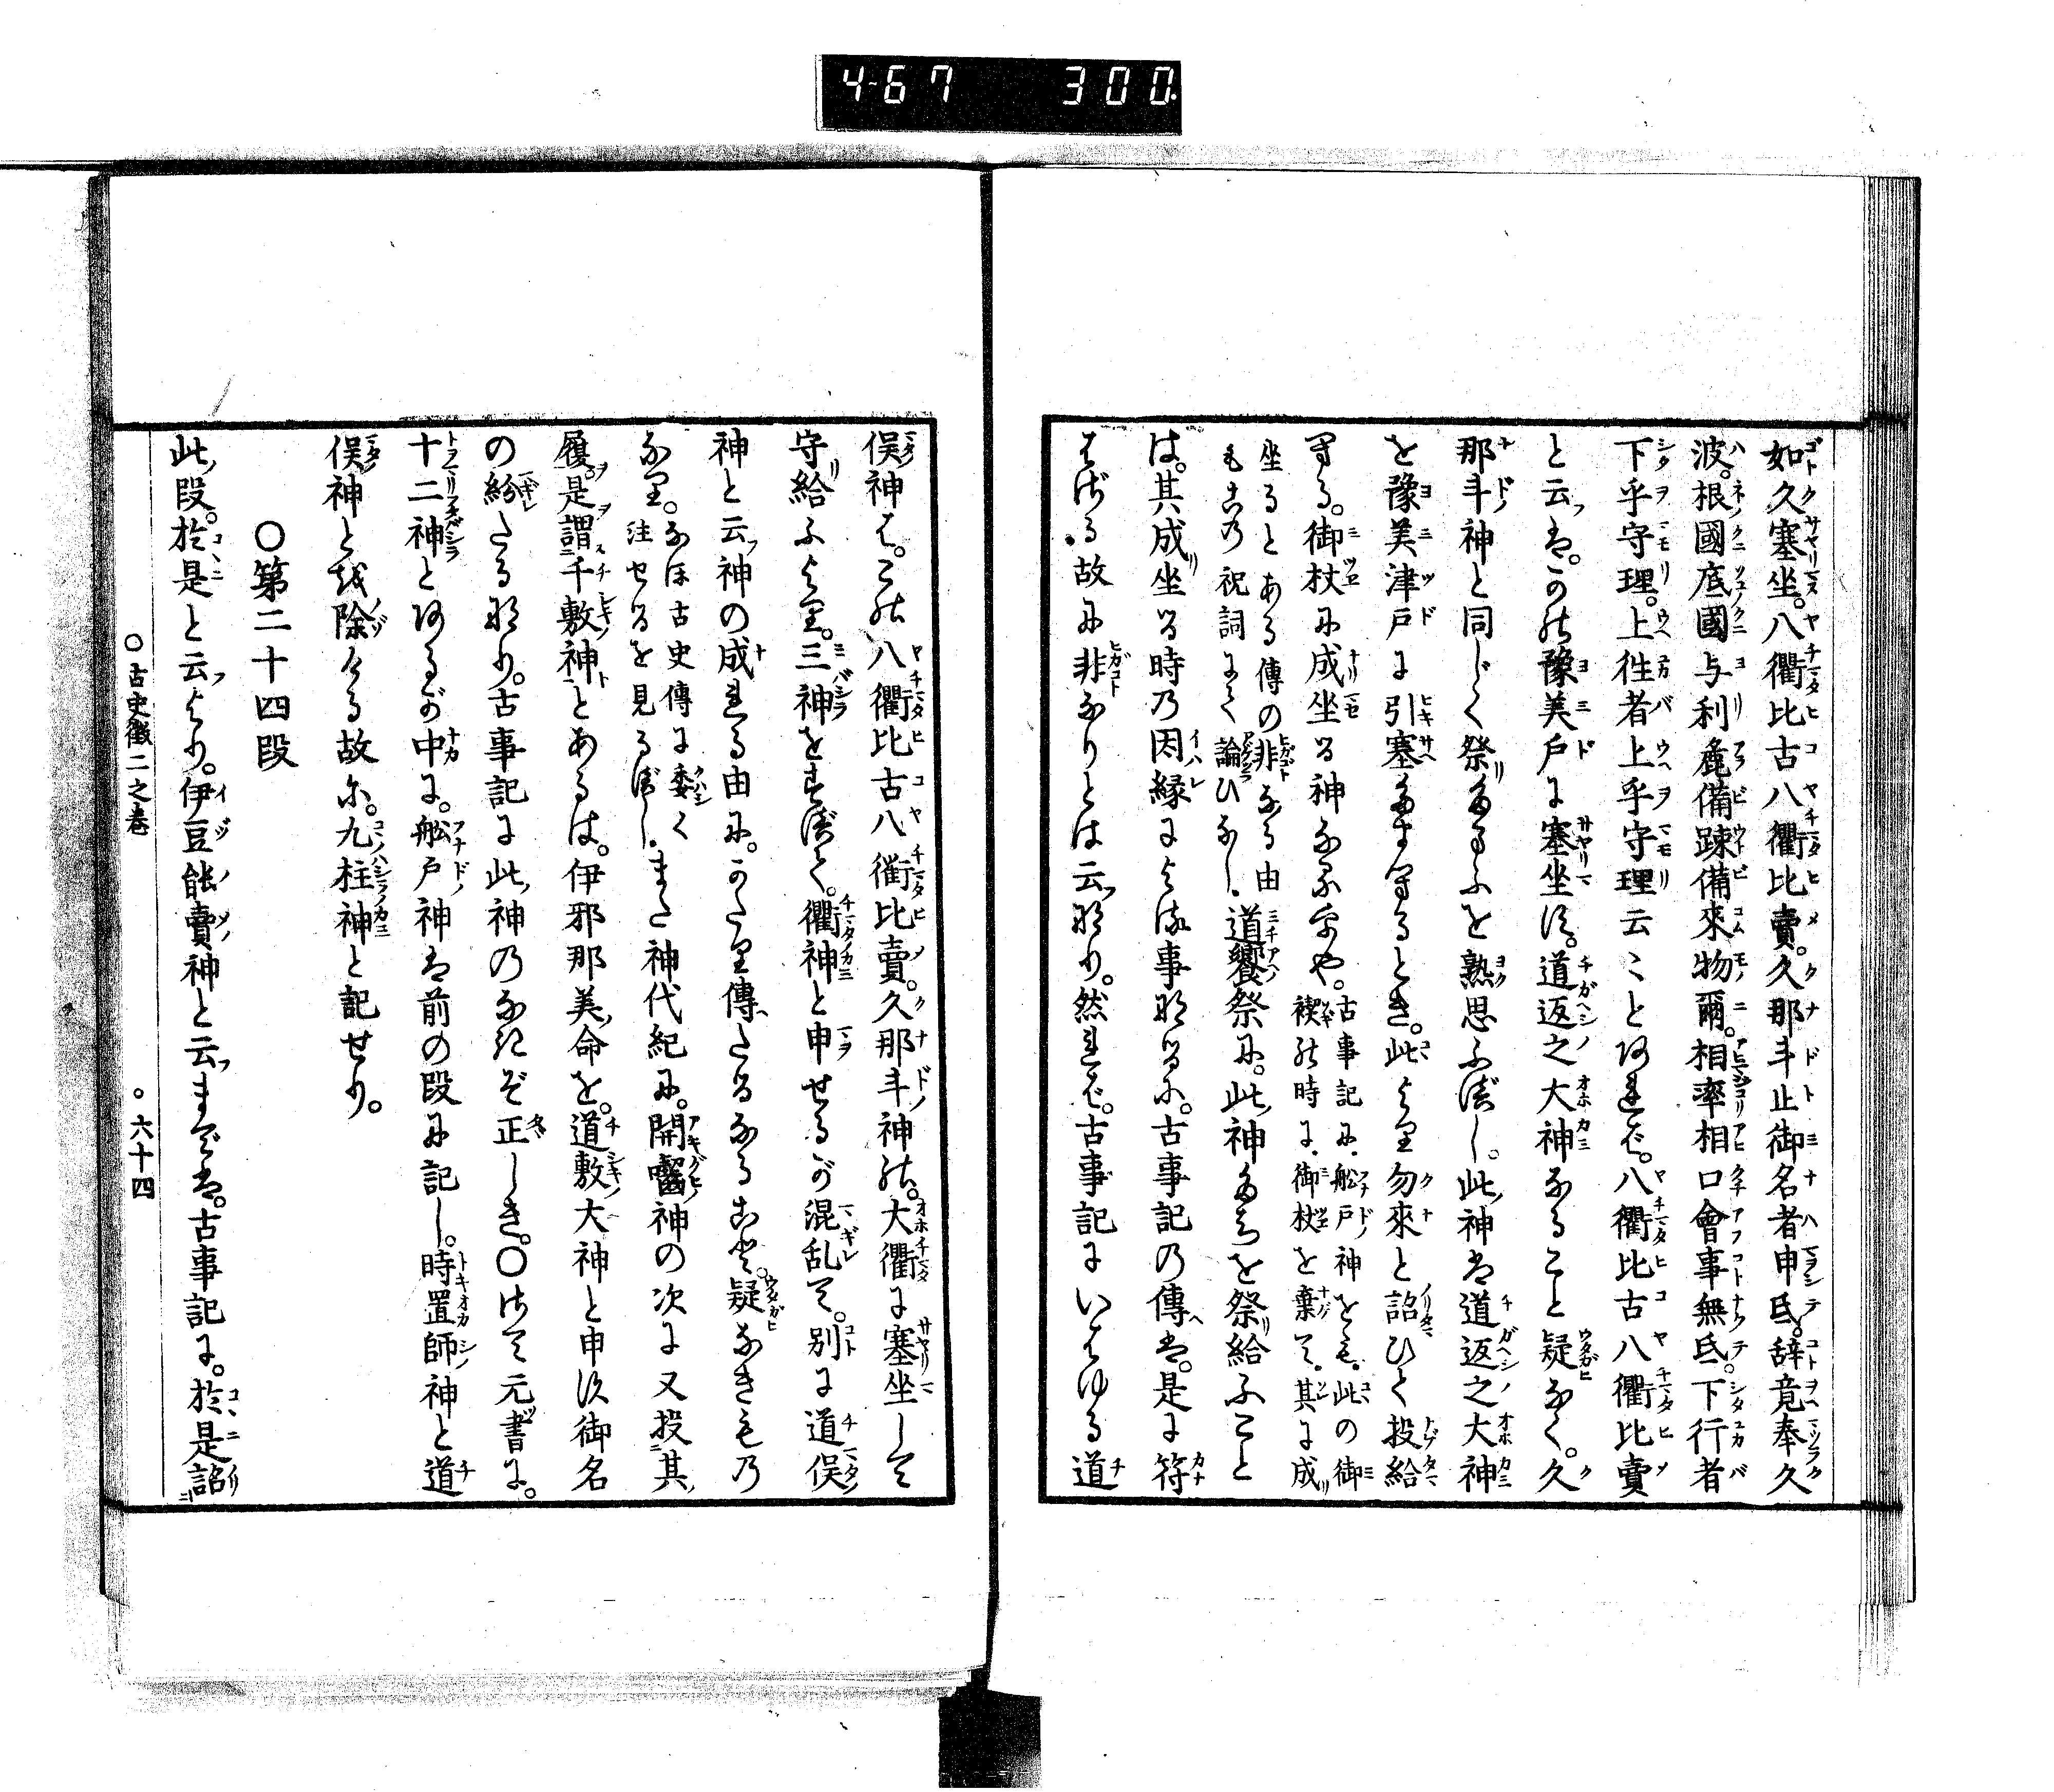 4-67 300
如久塞坐。八衢比古八衢比賣。久那斗止御名者申氐。辞竟奉久
波。根國底國与利麁備踈備來物爾。相率相口會事無氐。下行者
下乎守理。上徃者上乎守理云〻と阿れど。八衢比古八衢比賣
と云は。かの豫美戸に塞坐す。道返之大神なること疑なく。久
那斗神と同じく祭り給ふを熟思ふべし。此神は道返之大神
を豫美津戸に引塞給するとき。此より勿來と詔ひて投給
する。御杖に成坐る神ならずや。古事記に、船戸神をも、此の御
禊の時に、御杖を棄て、其に成
坐るとある傳の非なる由
もこの祝詞にて論ひなし、道饗祭に。此神たちを祭給ふこと
は。其成坐る時乃因縁による事なるに。古事記の傳は。是に符
はざる故に非なりとは云なり。然れど。古事記にいはゆる道
俣神は。この八衢比古八衢比賣。久那斗神の。大衢に塞坐して
守給ふより。三神をすべて。衢神と申せるが混乱て。別に道俣
神と云神の成れる由に。かたり傳たるなること。疑なきもの
なり。なほ古史傳に委く
注せるを見るべし、また神代紀に。開囓神の次に又投其
履。是謂千敷神とあるは。伊邪那美命を。道敷大神と申す御名
の紛たるなり。古事記に此神のなきぞ正しき。〇さて元書に。
十二神とあるが中に。船戸神は前の段に記し。時置師神と道
俣神とを除ける故に。九柱神と記せり。
〇第二十四段
此段。於是と云より。伊豆能賣神と云までは。古事記に。於是詔
〇古史徴二之巻 〇六十四